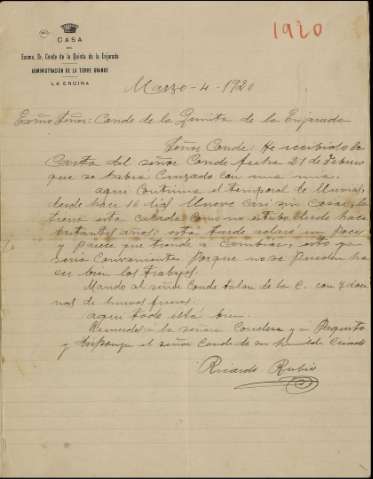 1920
CASA
DEL
Excmo. Sr. Conde de la Quinta de la Enjarada
ADMINISTRACIÓN DE LA TORRE GRANDE
LA ENCINA
Marzo-4-1920
Exmo Señor: Conde de la Quinta de la Enjarada
Señor Conde He recibido la
Carta del señor Conde fecha 21 de febrero
que se habia Cruzado con una mia.
aqui Continua el temporal de lluvias,
desde hace 16 dias llueve Casi sin Cesar, la
tierra esta calada como no estaba desde hace
bastantes años; esta tarde solero un poco
y parece que tiende a Cambiar, esto ya
seria Conveniente porque no se pueden ha
cer bien los trabajos.
Mando al señor Conde talon de la C. con 4 doce
nas de huevos frescos
aqui todo está bien.
Recuerdos á la señora Condesa y a Pepito
y disponga el señor Conde de su humilde Criado
Ricardo Rubio